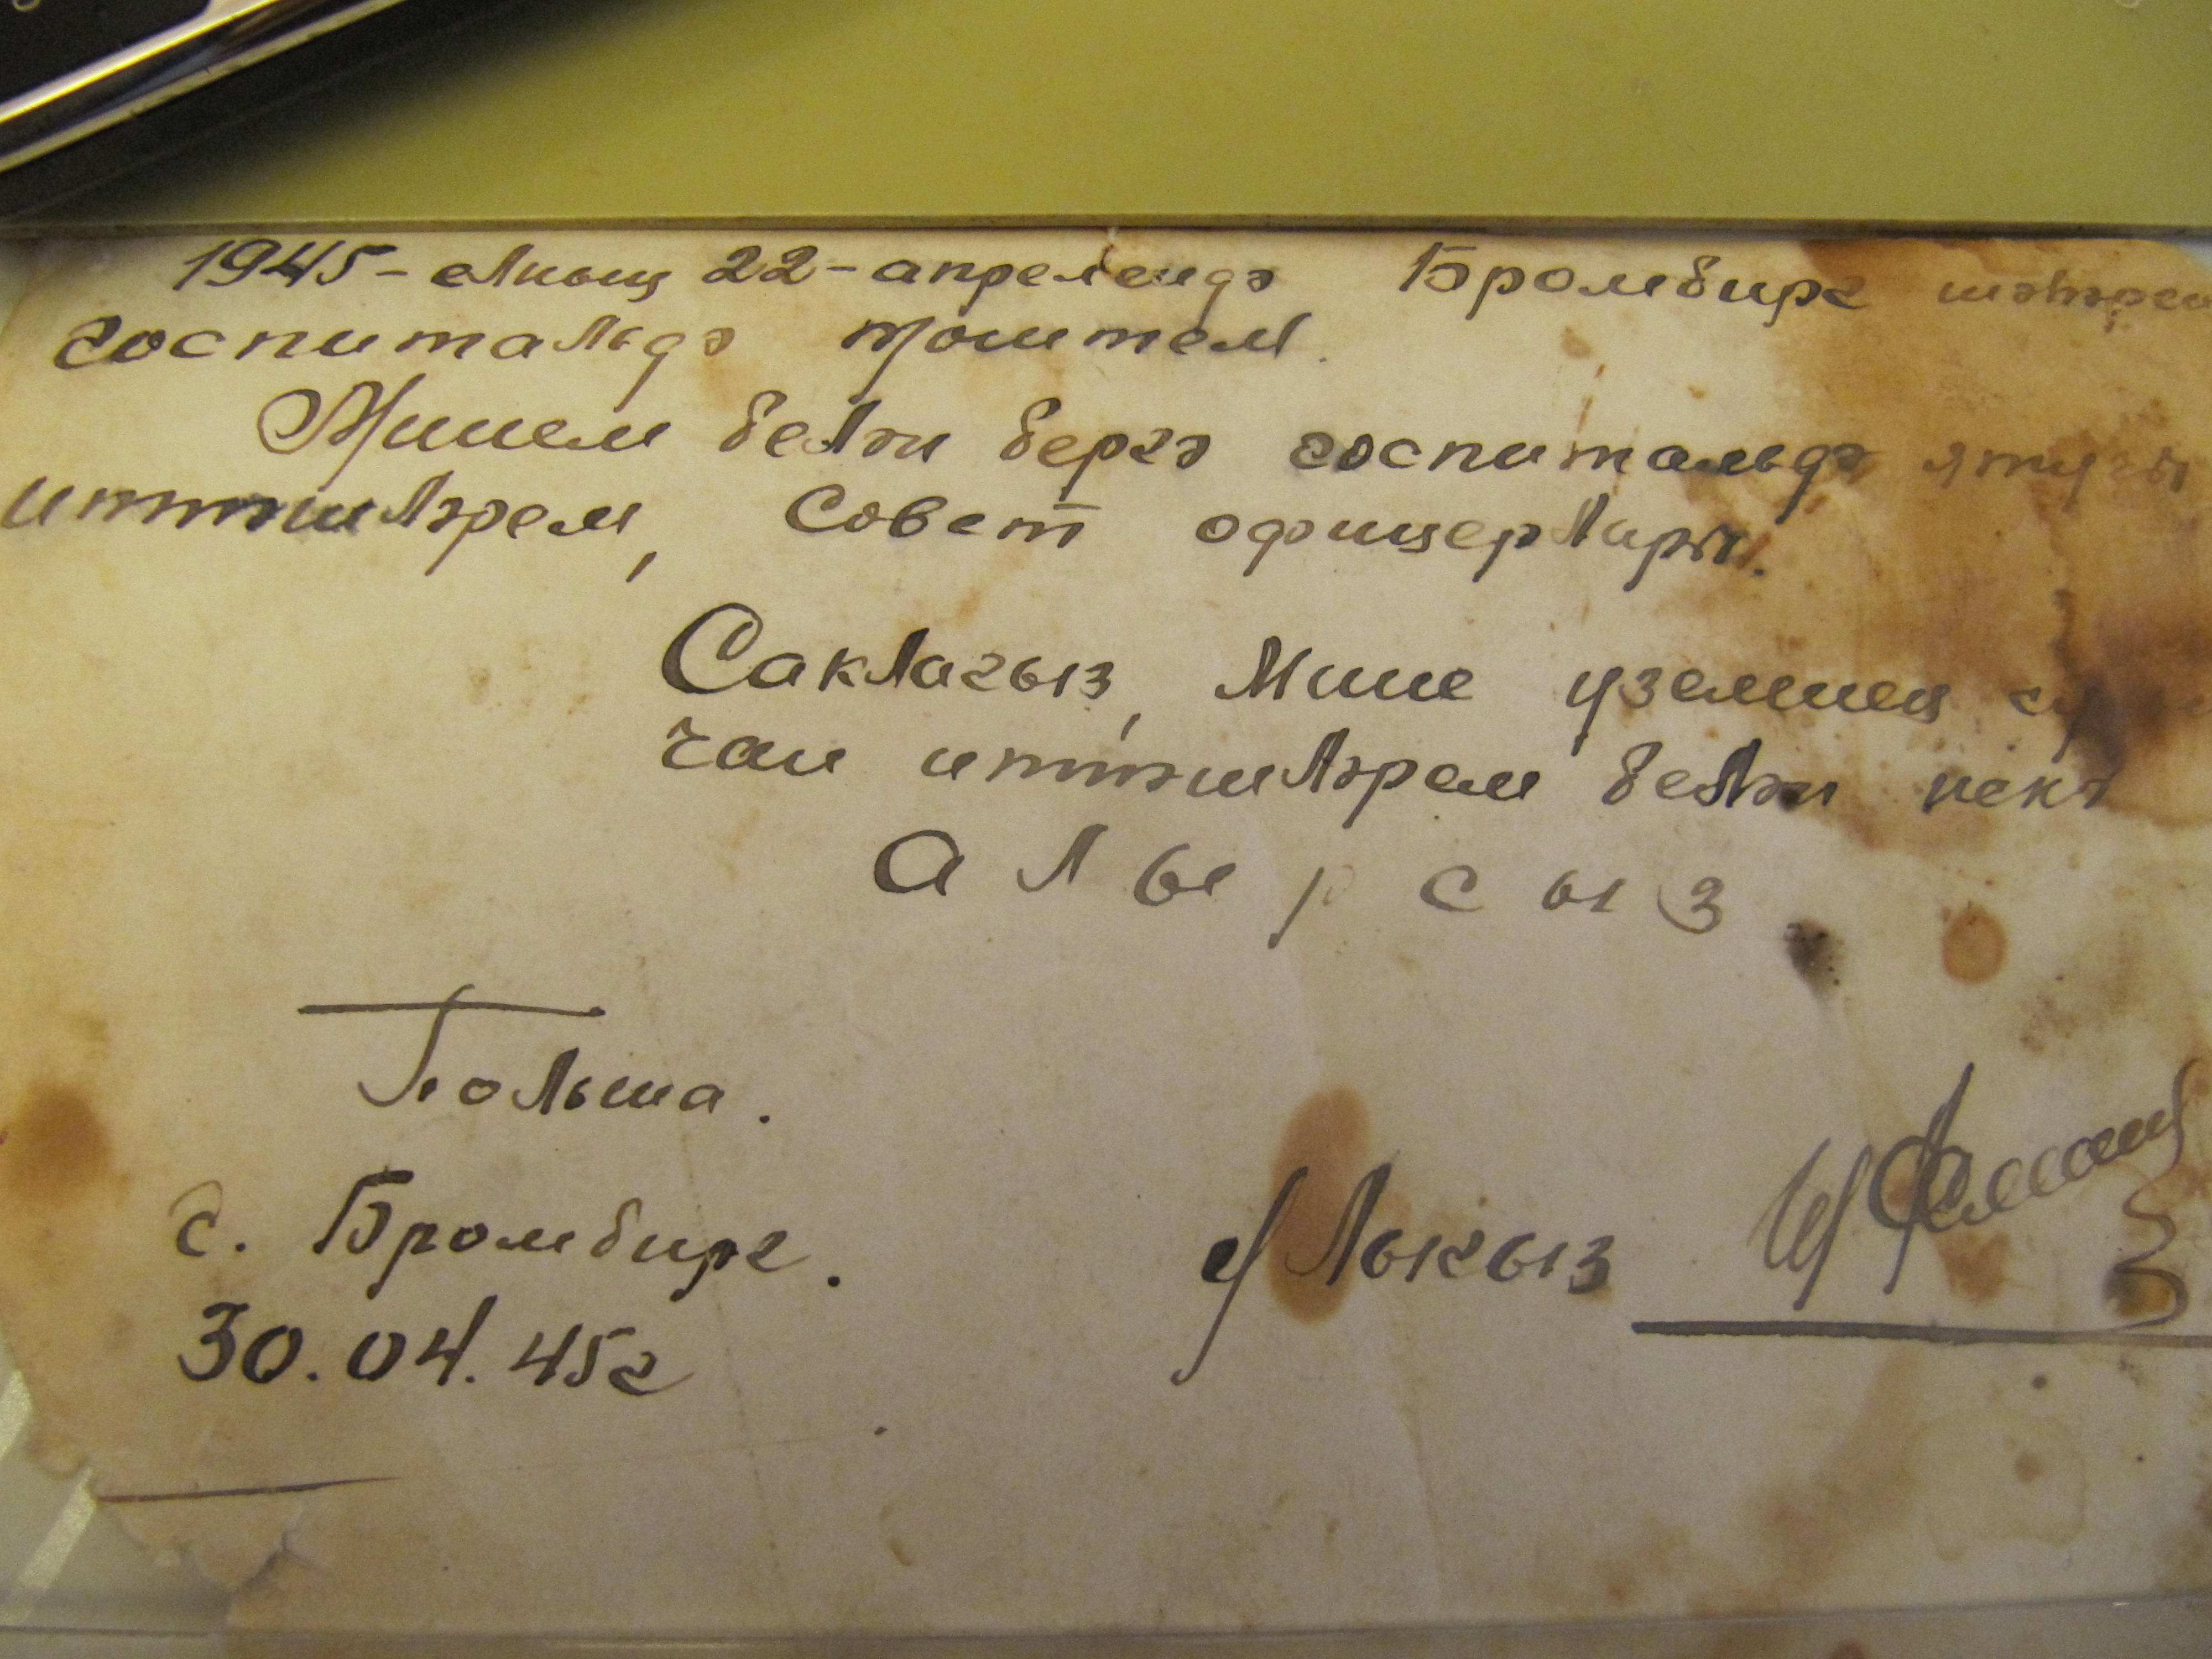 1945-елның 22-апрелендә Бромбирг шәһәрен
госпитальдә төштем.
Минем белән бергә госпитальдә ятучы
иптәшләрем, Совет офицерлары.
Саклагыз, Мине үземнең
ган иптәшләрем белән искә
алырсыз.
Польша.
г. Бромбирг.
30.04.45г
Улыгыз